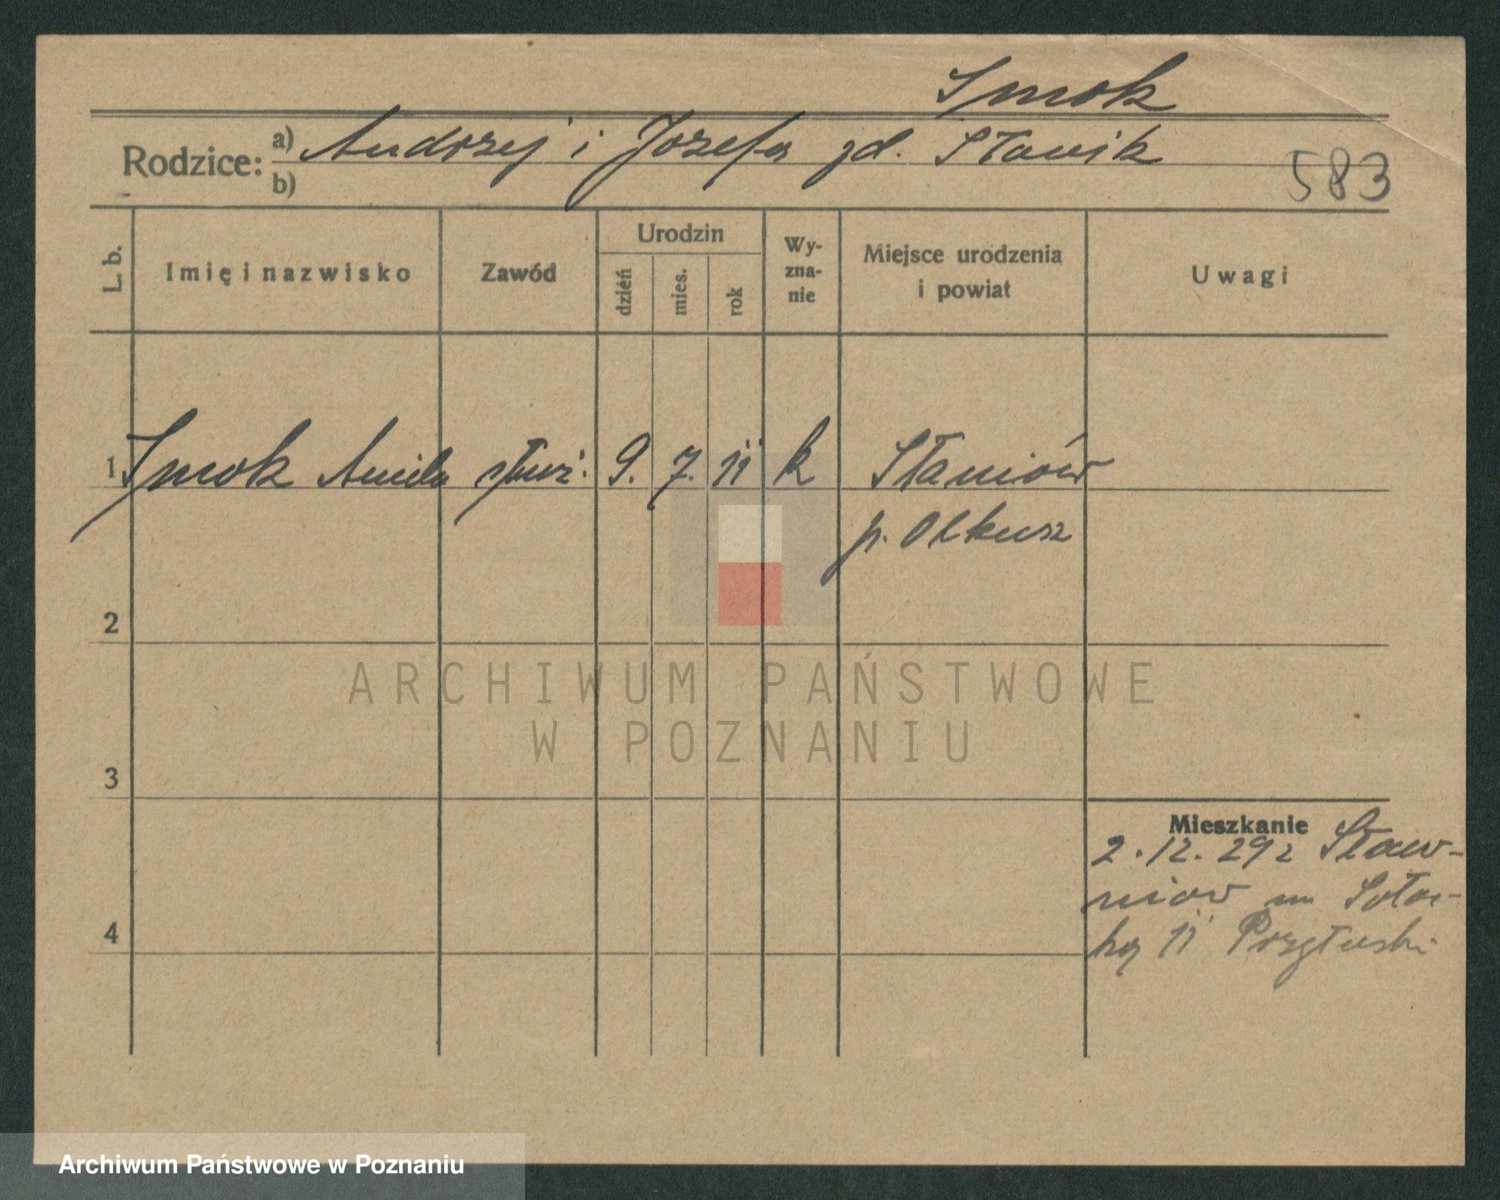 Smok
Rodzice: a) Andrzej i Józefa zd. Sławik
b)
583
L. b.
Imię i nazwisko
Zawód
Urodzin
dzień
mies.
rok
Wy-
zna-
nie
Miejsce urodzenia
i powiat
Uwagi
1 Smok Aniela służ. 9. 7. 11 k Staniów
p. Olkusz
2
3
4
Mieszkanie
2.12.29 z Sław-
niow
11 Przyłuski
ARCHIWUM PAŃSTWOWE
W POZNANIU
Archiwum Państwowe w Poznaniu